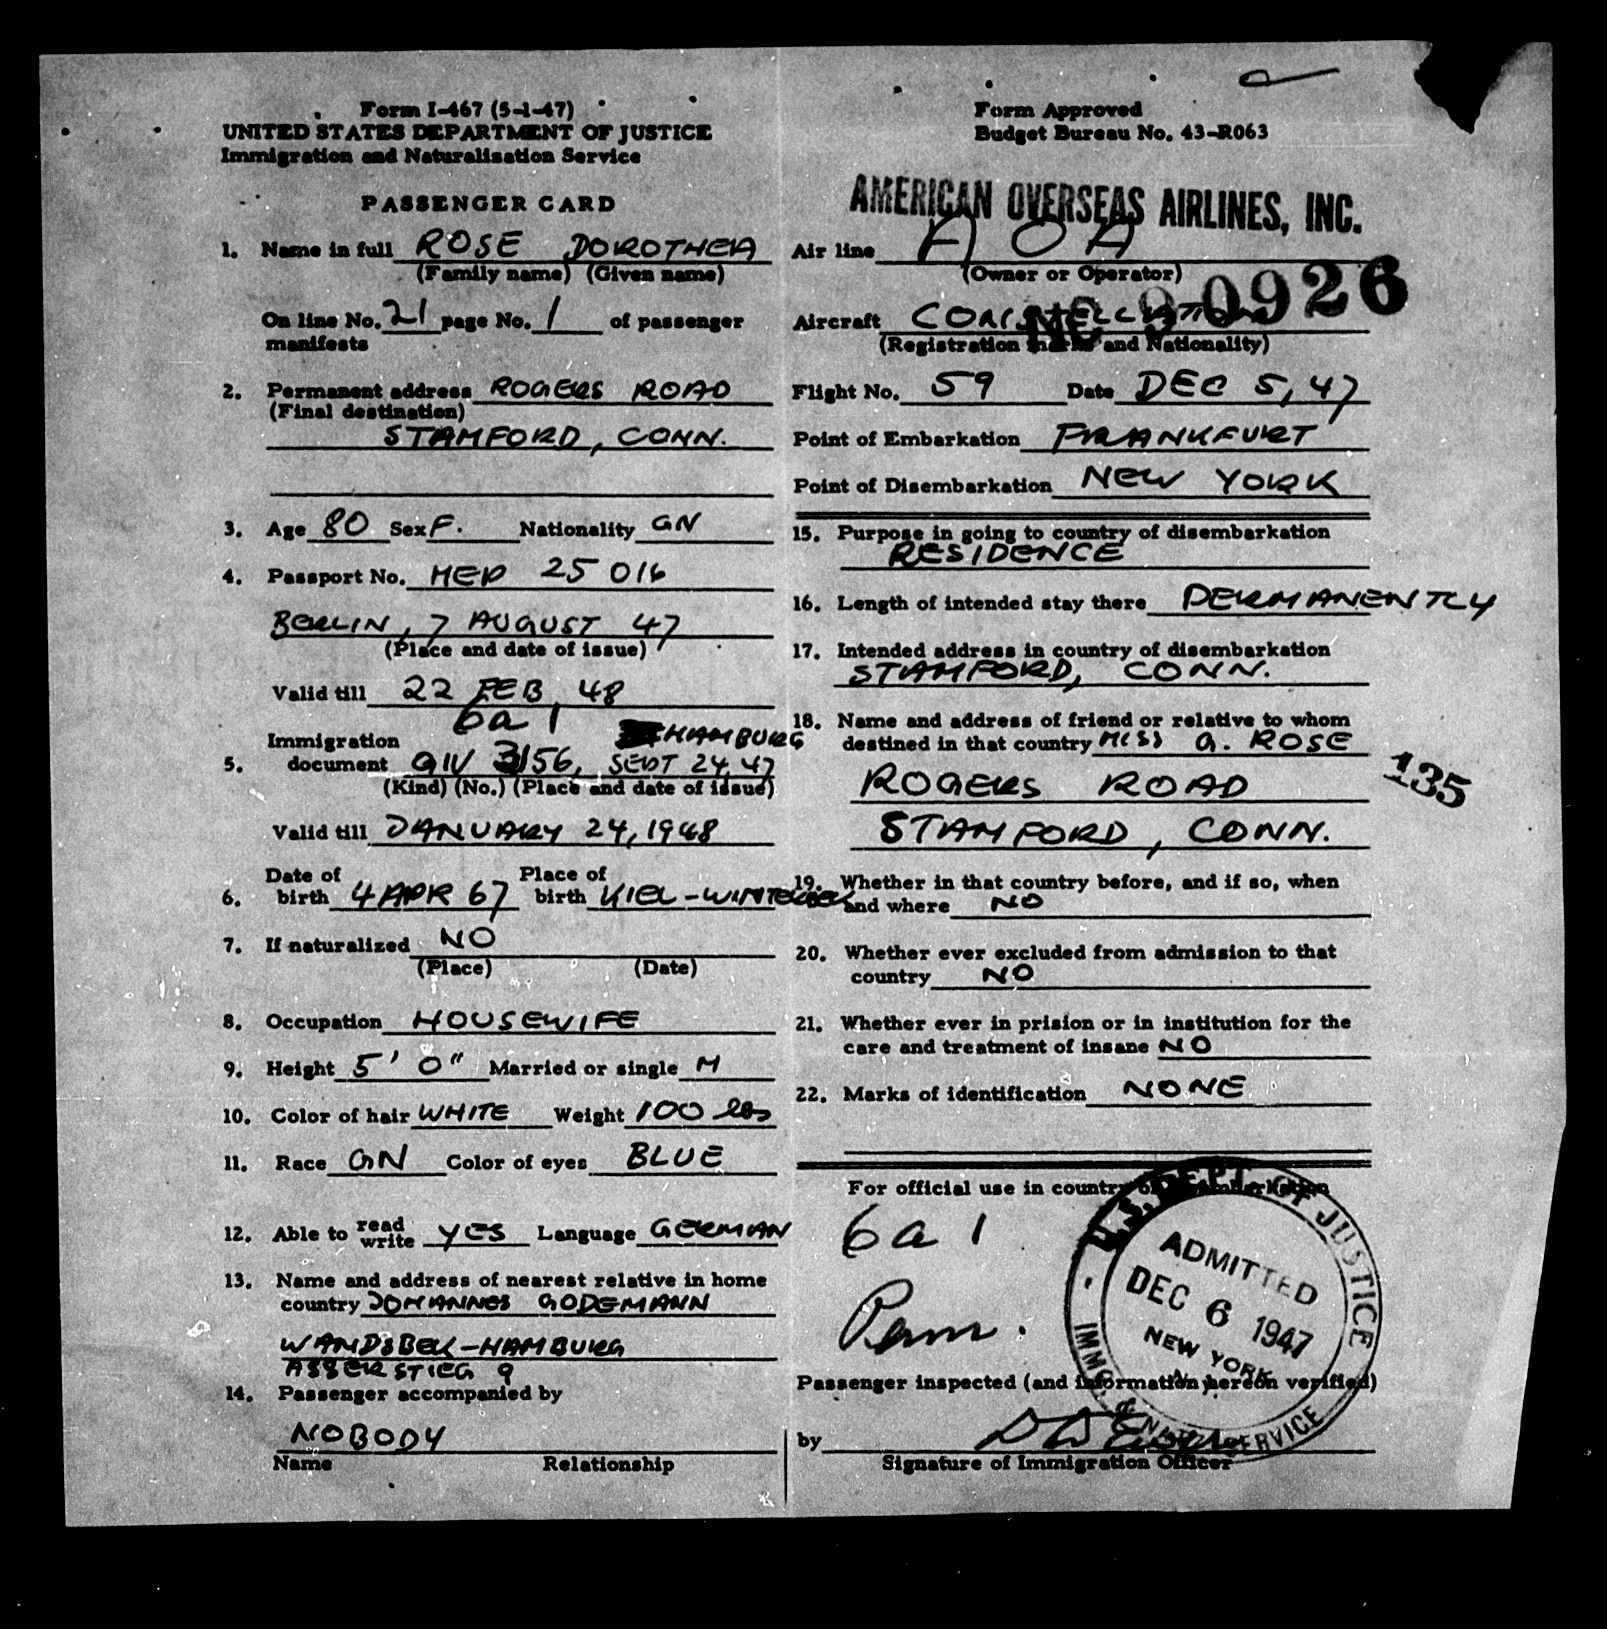 Form I-467 (5-1-47)
UNITED STATES DEPARTMENT OF JUSTICE
Immigration and Naturalization Service
PASSENGER CARD
1. Name in full ROSE DOROTHEA
(Family name) (Given name)
On line No. 21 page No. 1 of passenger
manifests
2. Permanent address ROGERS ROAD
(Final destination)
STAMFORD, CONN.
3. Age 80 Sex F. Nationality GN
4. Passport No. MED 25 016
BERLIN, 7 AUGUST 47
(Place and date of issue)
Valid till 22 FEB 48
6a 1
HAMBURG
Immigration
5. document QIV 3156, SEPT 24, 47
(Kind) (No.) (Place and date of issue)
Valid till JANUARY 24, 1948
Date of Place of
6. birth 4 APR 67 birth KIEL-WINTERBEK
7. If naturalized NO
(Place) (Date)
8. Occupation HOUSEWIFE
9. Height 5' 0" Married or single M
10. Color of hair WHITE Weight 100 lbs
11. Race GN Color of eyes BLUE
12. Able to read write YES Language GERMAN
13. Name and address of nearest relative in home
country JOHANNES GODEMANN
WANDSBEK-HAMBURG
ASSER STIEG 9
14. Passenger accompanied by
NOBODY
Name Relationship
Form Approved
Budget Bureau No. 43-R063
AMERICAN OVERSEAS AIRLINES, INC.
Air line A O A
(Owner or Operator)
90926
Aircraft CONSTELLATION
(Registration marks and Nationality)
Flight No. 59 Date DEC 5, 47
Point of Embarkation FRANKFURT
Point of Disembarkation NEW YORK
15. Purpose in going to country of disembarkation
RESIDENCE
16. Length of intended stay there PERMANENTLY
17. Intended address in country of disembarkation
STAMFORD, CONN.
18. Name and address of friend or relative to whom
destined in that country MISS G. ROSE
ROGERS ROAD
135
STAMFORD, CONN.
19. Whether in that country before, and if so, when
and where NO
20. Whether ever excluded from admission to that
country NO
21. Whether ever in prision or in institution for the
care and treatment of insane NO
22. Marks of identification NONE
For official use in country of disembarkation
6a 1
Perm.
U.S. DEPT. OF JUSTICE
ADMITTED
DEC 6 1947
NEW YORK
N.Y.
IMMIG. & NATZ. SERVICE
Passenger inspected (and information hereon verified)
by
Signature of Immigration Officer